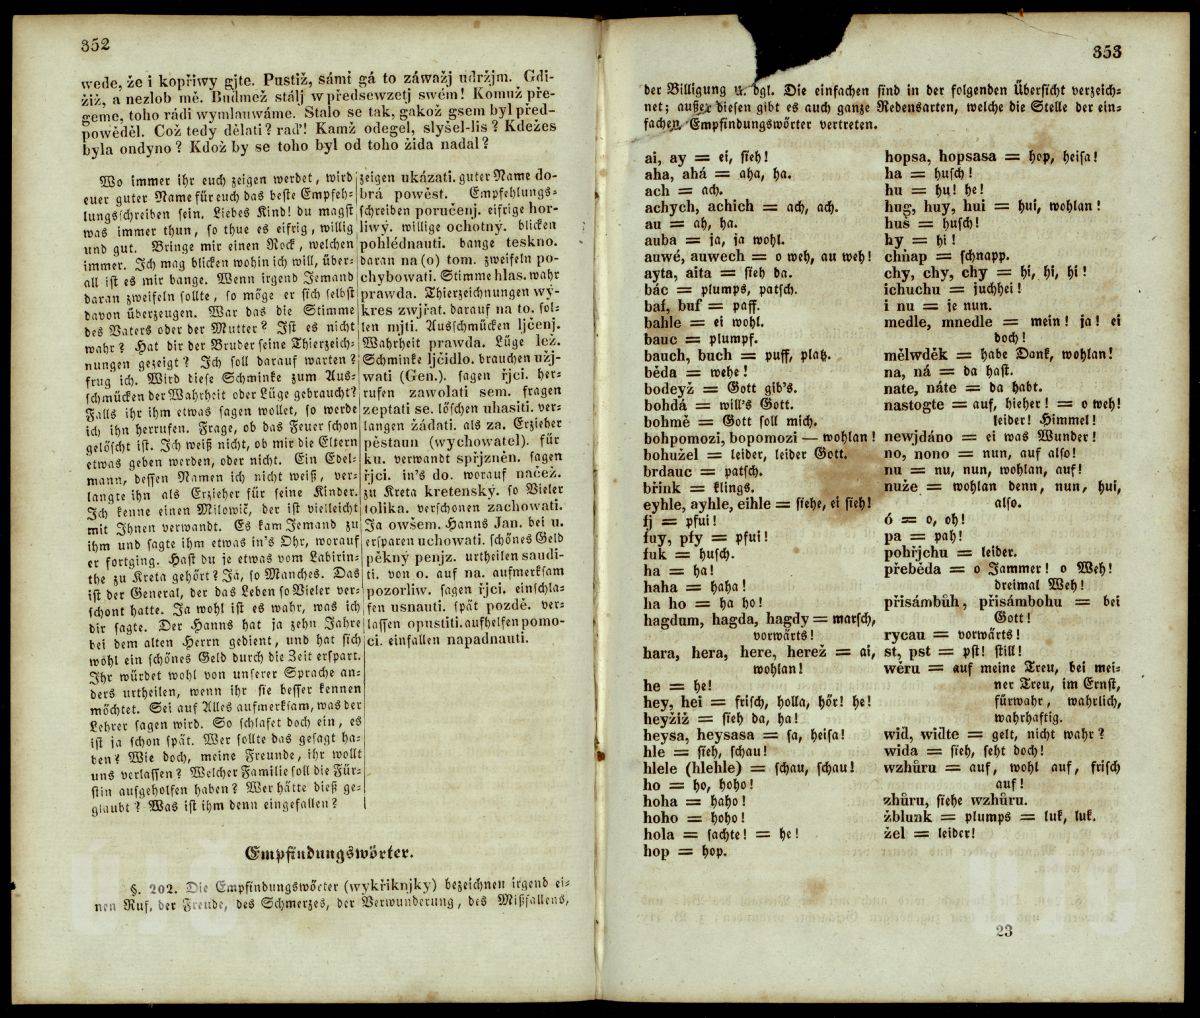 352
wede, že i kopřiwy gjte. Pustiž, sámi gá to záwažj udržjm. Gdi-
žiž, a nezlob mě. Budmež stálj w předsewzetj swém! Komuž pře-
geme, toho rádi wymlauwáme. Stalo se tak, gakož gsem byl před-
powěděl. Což tedy dělati? raď! Kamž odegel, slyšel-lis? Kdežes
byla ondyno? Kdož by se toho byl od toho žida nadal?
Wo immer ihr euch zeigen werdet, wird
euer guter Name für euch das beste Empfeh-
lungsschreiben sein. Liebes Kind! du magst
was immer thun, so thue es eifrig, willig
und gut. Bringe mir einen Rock, welchen
immer. Ich mag blicken wohin ich will, über-
all ist es mir bange. Wenn irgend Jemand
daran zweifeln sollte, so möge er sich selbst
davon überzeugen. War das die Stimme
des Vaters oder der Mutter? Ist es nicht
wahr? Hat dir der Bruder seine Thierzeich-
nungen gezeigt? Ich soll darauf warten?
frug ich. Wird diese Schminke zum Aus-
schmücken der Wahrheit oder Lüge gebraucht?
Falls ihr ihm etwas sagen wollet, so werde
ich ihn herrufen. Frage, ob das Feuer schon
gelöscht ist. Ich weiß nicht, ob mir die Eltern
etwas geben werden, oder nicht. Ein Edel-
mann, dessen Namen ich nicht weiß, ver-
langte ihn als Erzieher für seine Kinder.
Ich kenne einen Milowič, der ist vielleicht
mit Ihnen verwandt. Es kam Jemand zu
ihm und sagte ihm etwas in's Ohr, worauf
er fortging. Hast du je etwas vom Labirin-
the zu Kreta gehört? Ja, so Manches. Das
ist der General, der das Leben so Vieler ver-
schont hatte. Ja wohl ist es wahr, was ich
dir sagte. Der Hanns hat ja zehn Jahre
bei dem alten Herrn gedient, und hat sich
wohl ein schönes Geld durch die Zeit erspart.
Ihr würdet wohl von unserer Sprache an-
ders urtheilen, wenn ihr sie besser kennen
möchtet. Sei auf Alles aufmerksam, was der
Lehrer sagen wird. So schlafet doch ein, es
ist ja schon spät. Wer sollte das gesagt ha-
ben? Wie doch, meine Freunde, ihr wollt
uns verlassen? Welcher Familie soll die Für-
stin aufgeholfen haben? Wer hätte dieß ge-
glaubt? Was ist ihm denn eingefallen?
zeigen ukázati. guter Name do-
brá powěst. Empfehlungs-
schreiben poručenj. eifrige hor-
liwý. willige ochotný. blicken
pohlédnauti. bange teskno.
daran na (o) tom. zweifeln po-
chybowati. Stimme hlas. wahr
prawda. Thierzeichnungen wý-
kres zwjřat. darauf na to. sol-
len mjti. Ausschmücken ljčenj.
Wahrheit prawda. Lüge lež.
Schminke ljčidlo. brauchen užj-
wati (Gen.). sagen řjci. her-
rufen zawolati sem. fragen
zeptati se. löschen uhasiti. ver-
langen žádati. als za. Erzieher
pěstaun (wychowatel). für
ku. verwandt spřjzněn. sagen
řjci. in's do. worauf načež.
zu Kreta kretenský. so Vieler
tolika. verschonen zachowati.
Ja owšem. Hanns Jan. bei u.
ersparen uchowati. schönes Geld
pěkný penjz. urtheilen saudi-
ti. von o. auf na. aufmerksam
pozorliw. sagen řjci. einschla-
fen usnauti. spät pozdě. ver-
lassen opustiti. aufhelfen pomo-
ci. einfallen napadnauti.
Empfindungswörter.
§. 202. Die Empfindungswörter (wykřiknjky) bezeichnen irgend ei-
nen Ruf, der Freude, des Schmerzes, der Verwunderung, des Mißfallens,
353
der Billigung u. dgl. Die einfachen sind in der folgenden Übersicht verzeich-
net; außer diesen gibt es auch ganze Redensarten, welche die Stelle der ein-
fachen Empfindungswörter vertreten.
ai, ay = ei, sieh!
aha, ahá = aha, ha.
ach = ach.
achych, achich = ach, ach.
au = ah, ha.
auba = ja, ja wohl.
auwé, auwech = o weh, au weh!
ayta, aita = sieh da.
bác = plumps, patsch.
baf, buf = paff.
bahle = ei wohl.
bauc = plumpf.
bauch, buch = puff, platz.
běda = wehe!
bodeyž = Gott gib's.
bohdá = will's Gott.
bohmě = Gott soll mich.
bohpomozi, bopomozi — wohlan!
bohužel = leider, leider Gott.
brdauc = patsch.
břink = klings.
eyhle, ayhle, eihle = siehe, ei sieh!
fj = pfui!
fuy, pfy = pfui!
fuk = husch.
ha = ha!
haha = haha!
ha ho = ha ho!
hagdum, hagda, hagdy = marsch,
vorwärts!
hara, hera, here, herež = ai,
wohlan!
he = he!
hey, hei = frisch, holla, hör! he!
heyžiž = sieh da, ha!
heysa, heysasa = sa, heisa!
hle = sieh, schau!
hlele (hlehle) = schau, schau!
ho = ho, hoho!
hoha = haho!
hoho = hoho!
hola = sachte! = he!
hop = hop.
hopsa, hopsasa = hop, heisa!
ha = husch!
hu = hu! he!
hug, huy, hui = hui, wohlan!
huš = husch!
hy = hi!
chňap = schnapp.
chy, chy, chy = hi, hi, hi!
ichuchu = juchhei!
i nu = je nun.
medle, mnedle = mein! ja! ei
doch!
mělwděk = habe Dank, wohlan!
na, ná = da hast.
nate, náte = da habt.
nastogte = auf, hieher! = o weh!
leider! Himmel!
newjdáno = ei was Wunder!
no, nono = nun, auf also!
nu = nu, nun, wohlan, auf!
nuže = wohlan denn, nun, hui,
also.
ó = o, oh!
pa = pah!
pohřjchu = leider.
přeběda = o Jammer! o Weh!
dreimal Weh!
přisámbůh, přisámbohu = bei
Gott!
rycau = vorwärts!
st, pst = pst! still!
wěru = auf meine Treu, bei mei-
ner Treu, im Ernst,
fürwahr, wahrlich,
wahrhaftig.
wid, widte = gelt, nicht wahr?
wida = sieh, seht doch!
wzhůru = auf, wohl auf, frisch
auf!
zhůru, siehe wzhůru.
žblunk = plumps = luk, luk.
žel = leider!
23